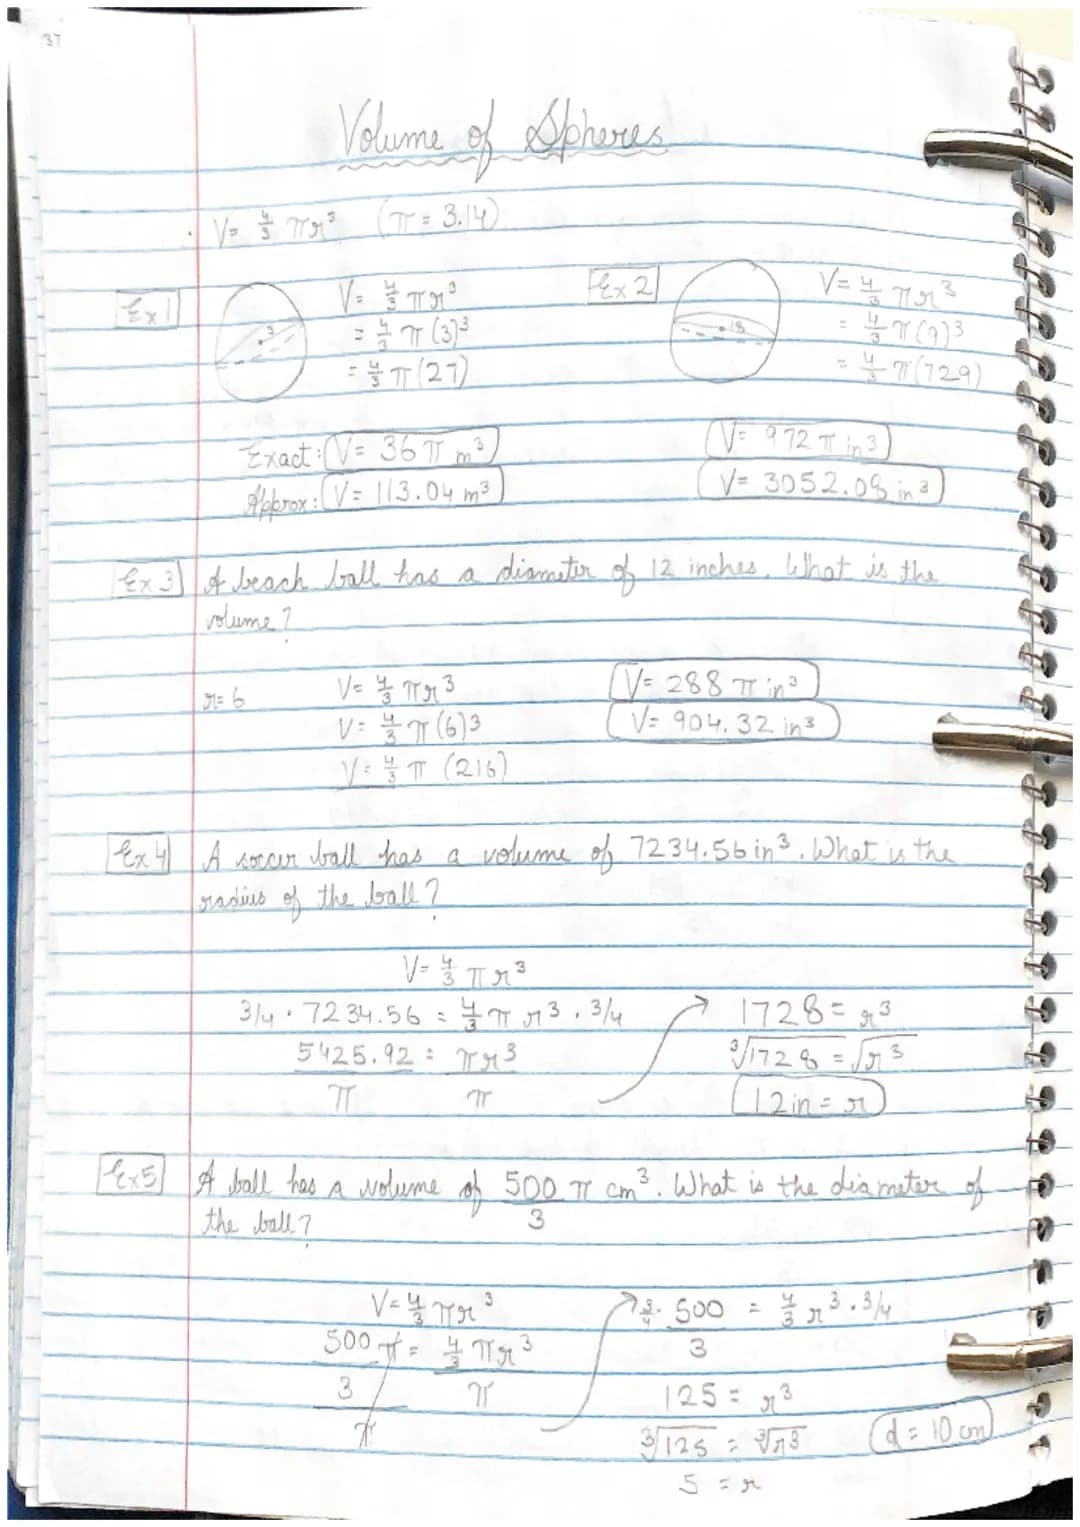 37
Volume of Spheres
· V= 4/3 πr³ (π = 3.14)
Ex 1
3
V= 4/3 πr³
= 4/3 π (3)³
= 4/3 π (27)
Exact: V= 36π m³
Approx: V= 113.04 m³
Ex 2
18
V= 4/3 πr³
= 4/3 π(9)³
= 4/3 π(729)
V= 972 π in³
V= 3052.08 in³
Ex 3 A beach ball has a diameter of 12 inches. What is the
volume?
r= 6
V= 4/3 πr³
V= 4/3 π(6)³
V= 4/3 π (216)
V= 288 π in³
V= 904.32 in³
Ex 4 A soccer ball has a volume of 7234.56 in³. What is the
radius of the ball?
V= 4/3 πr³
3/4 · 7234.56 = 4/3 π r³ · 3/4
5425.92 = πr³
π π
1728 = r³
³√1728 = √r³
12 in = r
Ex 5 A ball has a volume of 500 π cm³. What is the diameter of
3
the ball?
V= 4/3 πr³
500 π = 4/3 πr³
3 π
π
3/4 · 500 = 4/3 r³ · 3/4
3
125 = r³
³√125 = ³√r³
5 = r
d = 10 cm